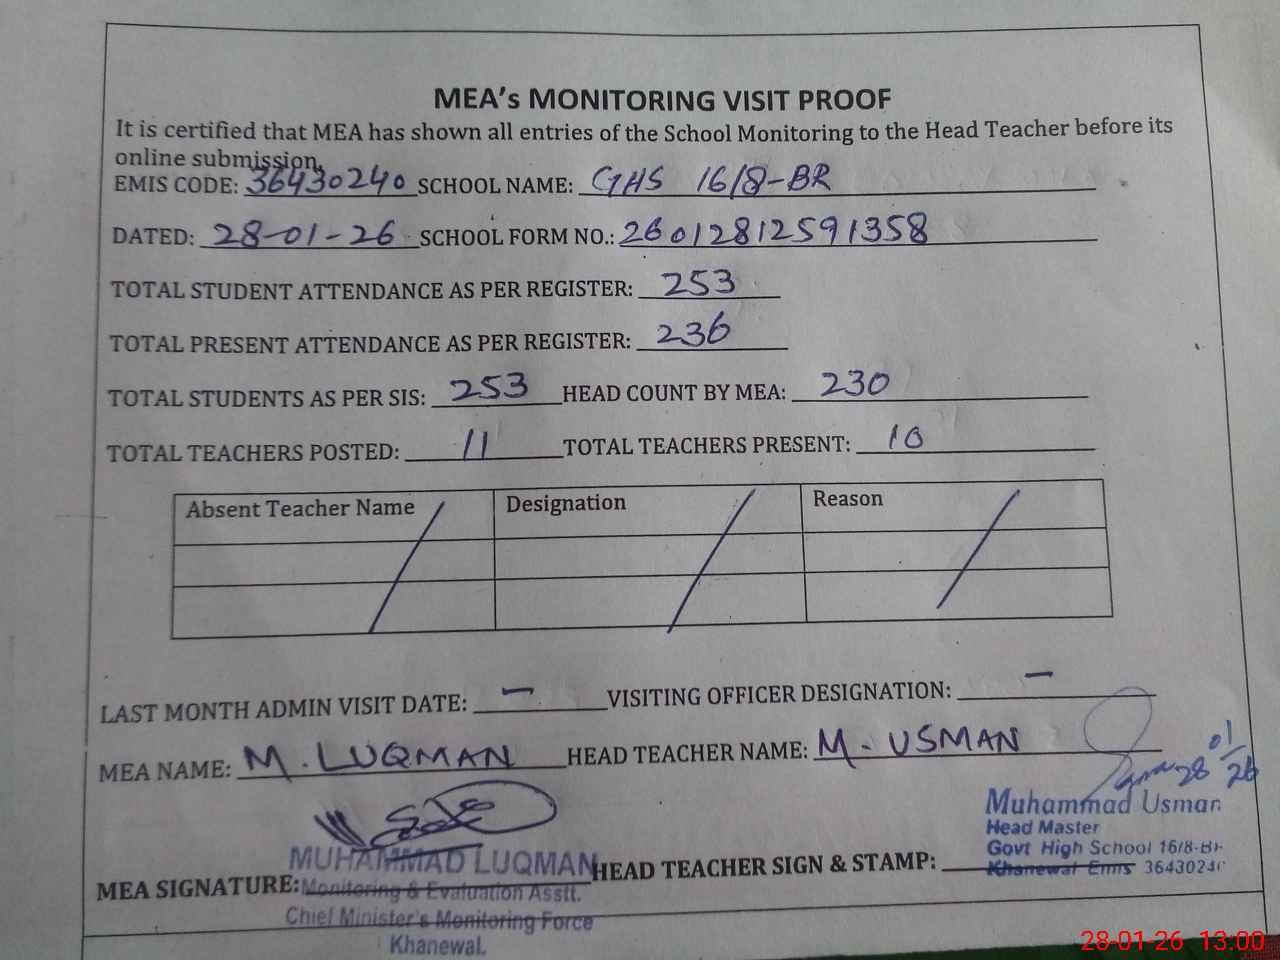 MEA's MONITORING VISIT PROOF
It is certified that MEA has shown all entries of the School Monitoring to the Head Teacher before its
online submission.
EMIS CODE: 36430240 SCHOOL NAME: GHS 16/8-BR
DATED: 28-01-26 SCHOOL FORM NO.: 26012812591358
TOTAL STUDENT ATTENDANCE AS PER REGISTER: 253
TOTAL PRESENT ATTENDANCE AS PER REGISTER: 236
TOTAL STUDENTS AS PER SIS: 253 HEAD COUNT BY MEA: 230
TOTAL TEACHERS POSTED: 11 TOTAL TEACHERS PRESENT: 10
Absent Teacher Name Designation Reason
LAST MONTH ADMIN VISIT DATE: - VISITING OFFICER DESIGNATION: -
MEA NAME: M. LUQMAN HEAD TEACHER NAME: M. USMAN
28 01/26
Muhammad Usman
Head Master
Govt High School 16/8-BR
Khanewal Emis 36430240
MEA SIGNATURE: HEAD TEACHER SIGN & STAMP:
MUHAMMAD LUQMAN
Monitoring & Evaluation Asstt.
Chief Minister's Monitoring Force
Khanewal.
28-01-26 13:00